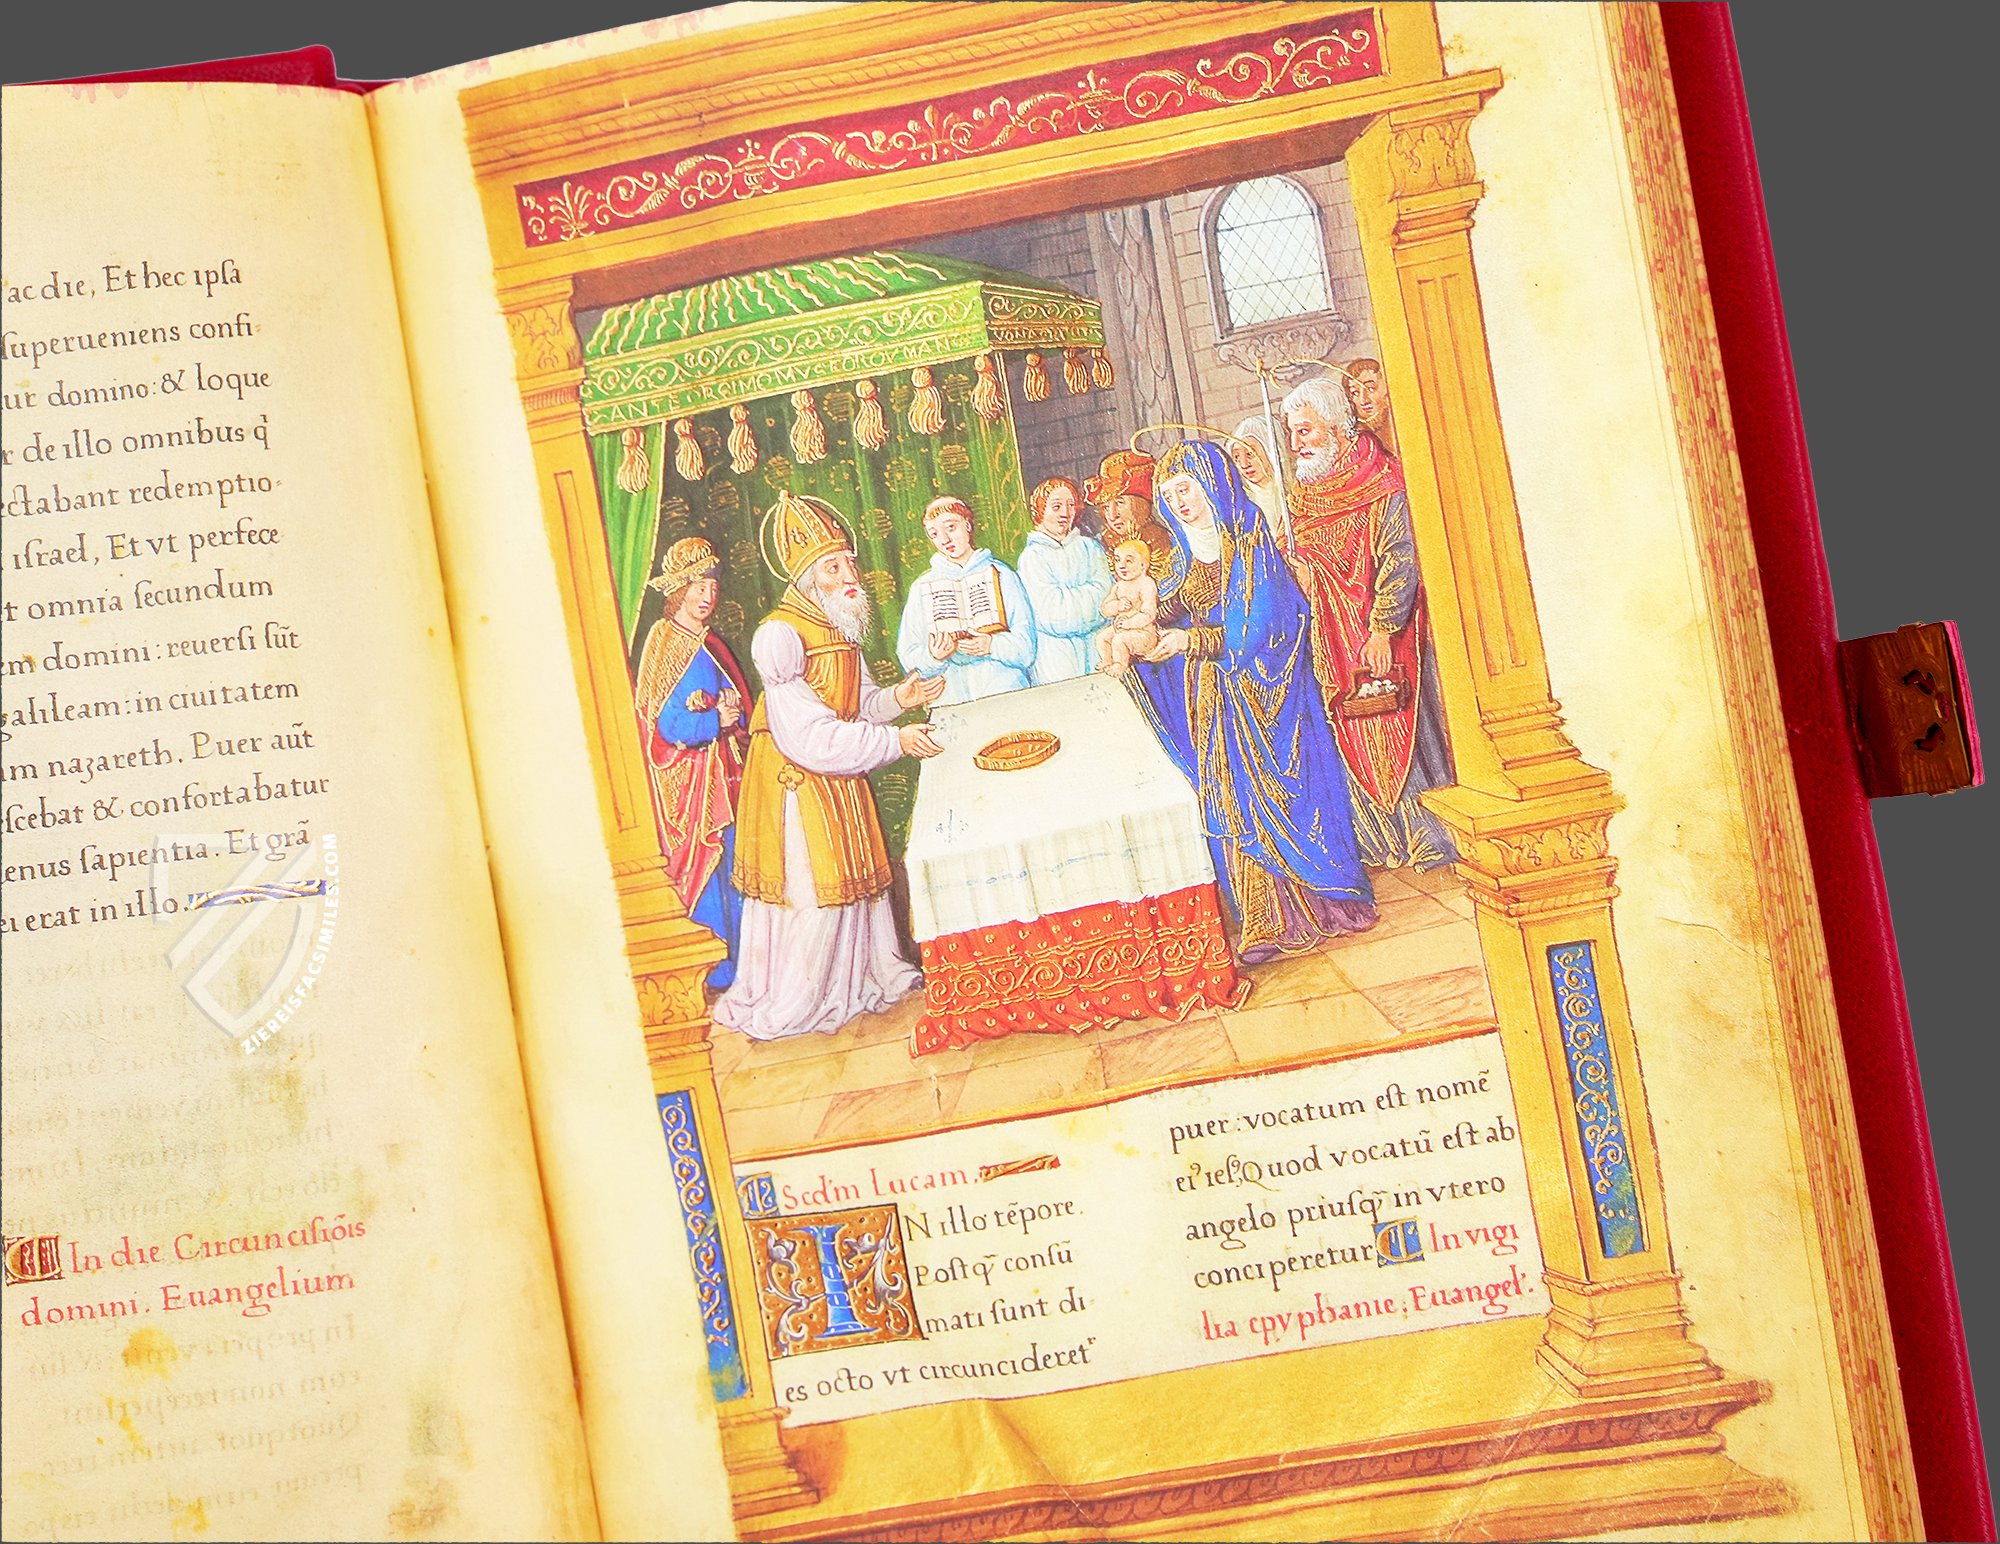 ac die, Et hec ipſa
ſuperueniens confi⸗
domino: & loque
de illo omnibus q̇
ctabant redemptio⸗
iſrael, Et vt perfece⸗
omnia ſecundum
domini: reuerſi ſūt
galileam: in ciuitatem
nazareth. Puer aūt
& confortabatur
ſapientia. Et grā
erat in illo.
In die Circunciſiōis
domini. Euangelium
ANTE
Scd'm Lucam.
IN illo tēpore.
Poſtq̄ conſū
mati ſunt di⸗
es octo vt circuncideret᷑
puer: vocatum eſt nomē
eiꝰ ieſꝰ, Quod vocatū eſt ab
angelo priuſq̄ in vtero
conciperetur In vigi
lia epyphanie, Euangel'.
ZIEREISFACSIMILES.COM